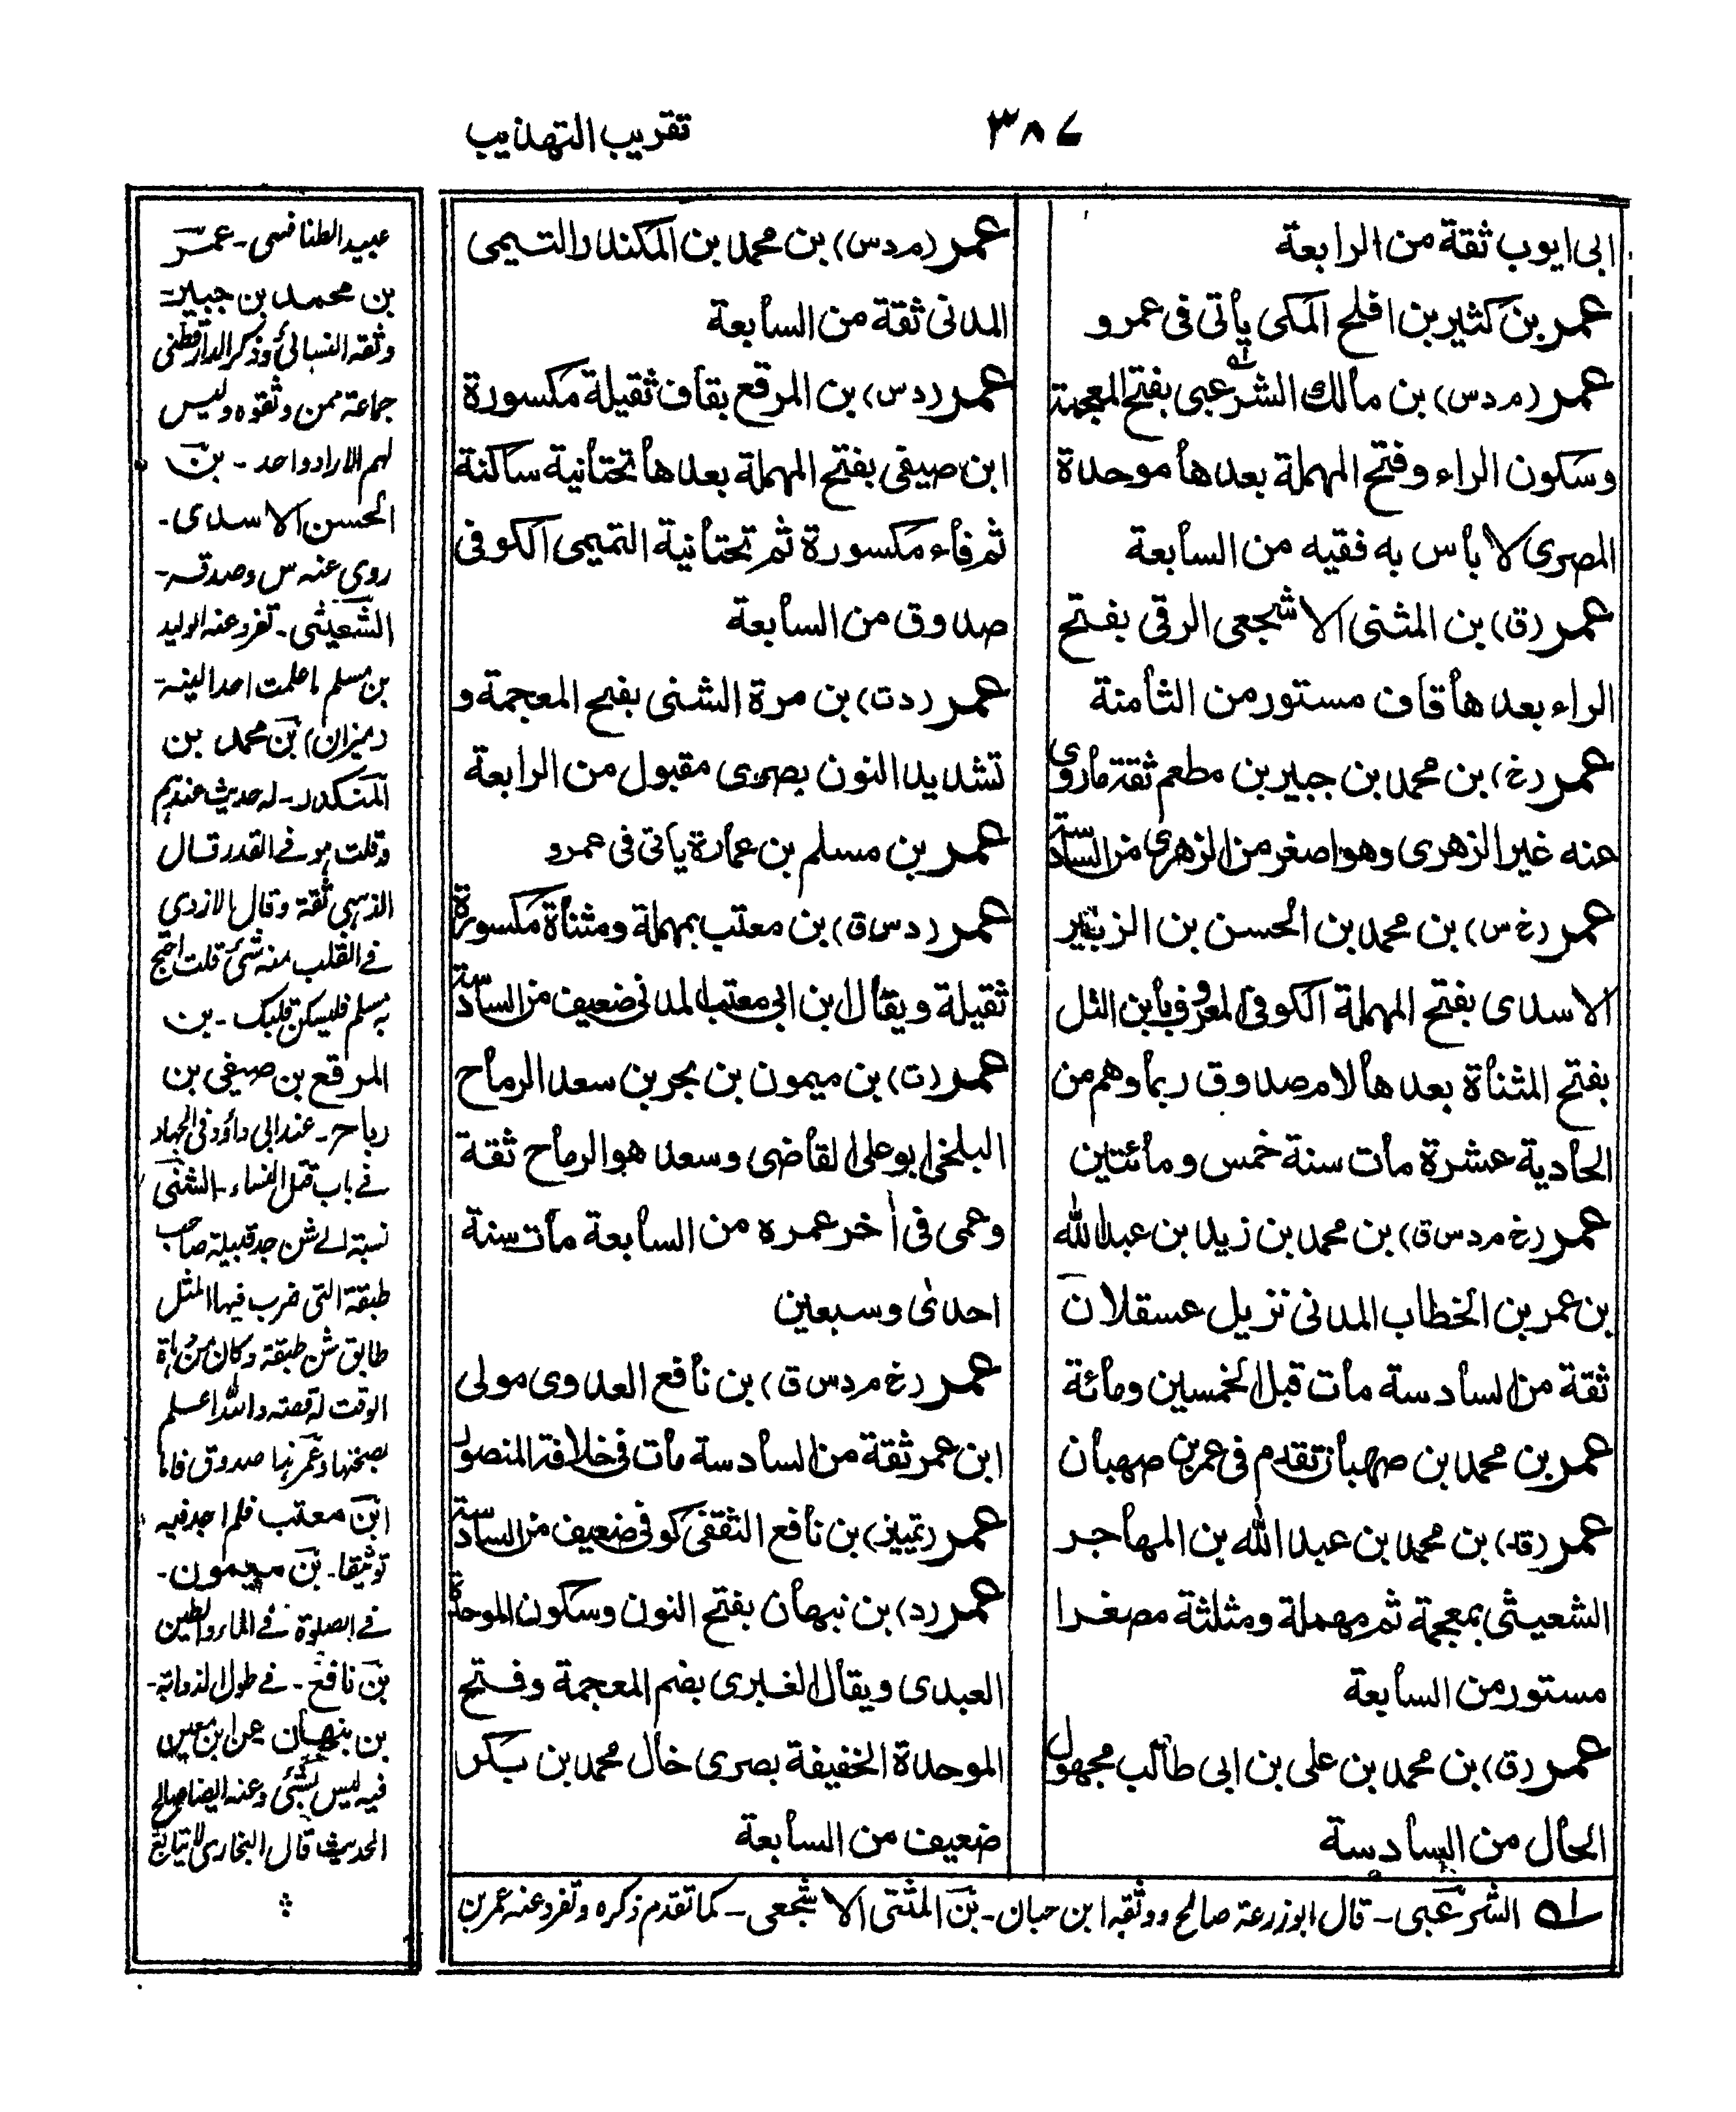 ٣٨٧
تقريب التهذيب
ابى ايوب ثقة من الرابعة
عمر بن كثير بن افلح المكى يأتى فى عمرو
عمر (م د س) بن مالك الشرعبى بفتح المعجمة
وسكون الراء وفتح المهملة بعدها موحدة
المصرى لا بأس به فقيه من السابعة
عمر (ق) بن المثنى الاشجعى الرقى بفتح
الراء بعدها قاف مستور من الثامنة
عمر (خ) بن محمد بن جبير بن مطعم ثقة ما روى
عنه غير الزهرى وهو اصغر من الزهرى من السادسة
عمر (خ س) بن محمد بن الحسن بن الزبير
الاسدى بفتح المهملة الكوفى المعروف بابن التل
بفتح المثناة بعدها لام صدوق ربما وهم من
الحادية عشرة مات سنة خمس ومائتين
عمر (خ م د س ق) بن محمد بن زيد بن عبد الله
بن عمر بن الخطاب المدنى نزيل عسقلان
ثقة من السادسة مات قبل الخمسين ومائة
عمر بن محمد بن صهبان تقدم فى عمر بن صهبان
عمر (قد) بن محمد بن عبد الله بن المهاجر
الشعيثى بمعجمة ثم مهملة ومثلثة مصغرا
مستور من السابعة
عمر (ق) بن محمد بن على بن ابى طالب مجهول
الحال من السادسة
عمر (م د س) بن محمد بن المكندر التسيمى
المدنى ثقة من السابعة
عمر (د س) بن المرقع بقاف ثقيلة مكسورة
ابن صيفى بفتح المهملة بعدها تحتانية ساكنة
ثم فاء مكسورة ثم تحتانية التميمى الكوفى
صدوق من السابعة
عمر (د ت) بن مرة الشنى بفتح المعجمة و
تشديد النون بصرى مقبول من الرابعة
عمر بن مسلم بن عمارة يأتى فى عمرو
عمر (د س ق) بن معتب بمهملة ومثناة مكسورة
ثقيلة ويقال ابن ابى معتب المدنى ضعيف من السادسة
عمر (ت) بن ميمون بن بحر بن سعد الرماح
البلخى ابو على القاضى وسعد هو الرماح ثقة
وعمى فى أخر عمره من السابعة مات سنة
احدى وسبعين
عمر (خ م د س ق) بن نافع العدوى مولى
ابن عمر ثقة من السادسة مات فى خلافة المنصور
عمر (تمييز) بن نافع الثقفى كوفى ضعيف من السادسة
عمر (د) بن نبهان بفتح النون وسكون الموحدة
العبدى ويقال الغبرى بضم المعجمة وفتح
الموحدة الخفيفة بصرى خال محمد بن بكر
ضعيف من السابعة
عبيد الطنافسى - عمر
بن محمد بن جبير -
وثقه النسائى وذكر الدارقطنى
جماعة ممن وثقوه وليس
لهم الا راو واحد - بن
الحسن الاسدى -
روى عنه س وصدقه -
الشعيثى - تفرد عنه الوليد
بن مسلم ما علمت احدا لينه -
(ميزان) بن محمد بن
المنكدر - له حديث عندهم
وقلت هو فى القدر قال
الذهبى ثقة وقال الازدى
فى القلب منه شئ قلت احتج
به مسلم فليسكن قلبك - بن
المرقع بن صيفى بن
رباح - عند ابى داؤد فى الجهاد
فى باب قتل النساء - الشنى
نسبة الى شن جد قبيلة صاحب
طبقة التى ضرب فيها المثل
طابق شن طبقة وكان من دهاة
الوقت له قصة والله اعلم
بصحتها وعمر هذا صدوق فاما
ابن معتب فلم اجد فيه
توثيقا - بن ميمون -
فى الصلوة فى الماء والطين
بن نافع - فى طول الذوابة -
بن بنهان عن ابن معين
فيه ليس بشئ وعنه ايضا صالح
الحديث قال البخارى لا يتابع
له الشرعبى - قال ابو زرعة صالح ووثقه ابن حبان - بن المثنى الاشجعى - كما تقدم ذكره وتفرد عنه عمر بن